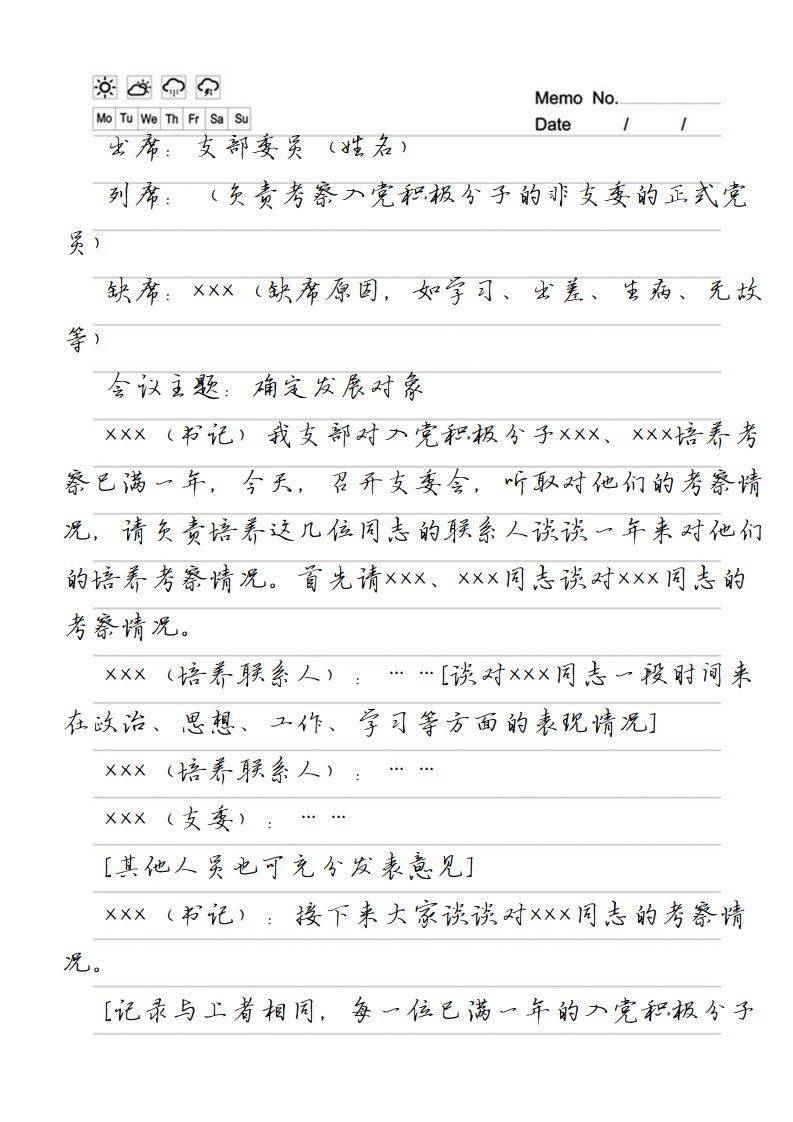 Memo No.
Mo Tu We Th Fr Sa Su
Date / /
出席：支部委员（姓名）
列席：（负责考察入党积极分子的非支委的正式党
员）
缺席：×××（缺席原因，如学习、出差、生病、无故
等）
会议主题：确定发展对象
×××（书记）我支部对入党积极分子×××、×××培养考
察已满一年，今天，召开支委会，听取对他们的考察情
况，请负责培养这几位同志的联系人谈谈一年来对他们
的培养考察情况。首先请×××、×××同志谈对×××同志的
考察情况。
×××（培养联系人）：… …[谈对×××同志一段时间来
在政治、思想、工作、学习等方面的表现情况]
×××（培养联系人）：… …
×××（支委）：… …
[其他人员也可充分发表意见]
×××（书记）：接下来大家谈谈对×××同志的考察情
况。
[记录与上者相同，每一位已满一年的入党积极分子